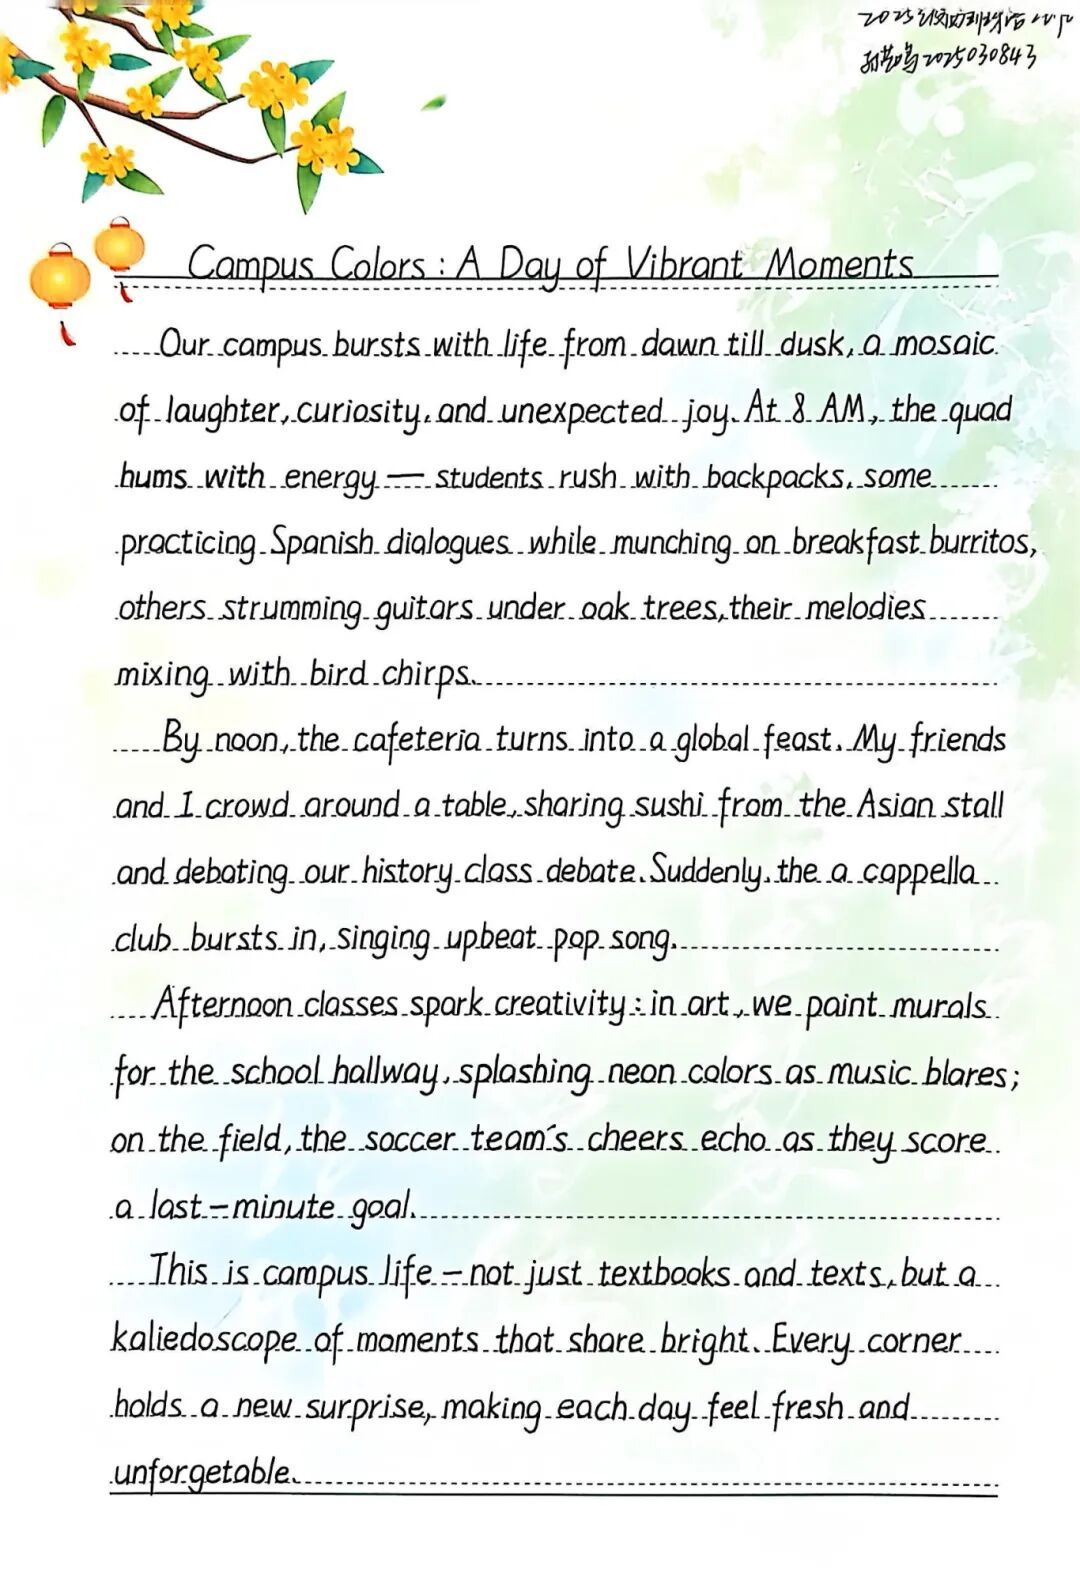 2025
2025030843
Campus Colors: A Day of Vibrant Moments
Our campus bursts with life from dawn till dusk, a mosaic
of laughter, curiosity, and unexpected joy. At 8 AM, the quad
hums with energy — students rush with backpacks, some
practicing Spanish dialogues while munching on breakfast burritos,
others strumming guitars under oak trees, their melodies
mixing with bird chirps.
By noon, the cafeteria turns into a global feast. My friends
and I crowd around a table, sharing sushi from the Asian stall
and debating our history class debate. Suddenly, the a cappella
club bursts in, singing upbeat pop song.
Afternoon classes spark creativity: in art, we paint murals
for the school hallway, splashing neon colors as music blares;
on the field, the soccer team's cheers echo as they score
a last-minute goal.
This is campus life - not just textbooks and texts, but a
kaliedoscope of moments that share bright. Every corner
holds a new surprise, making each day feel fresh and
unforgetable.